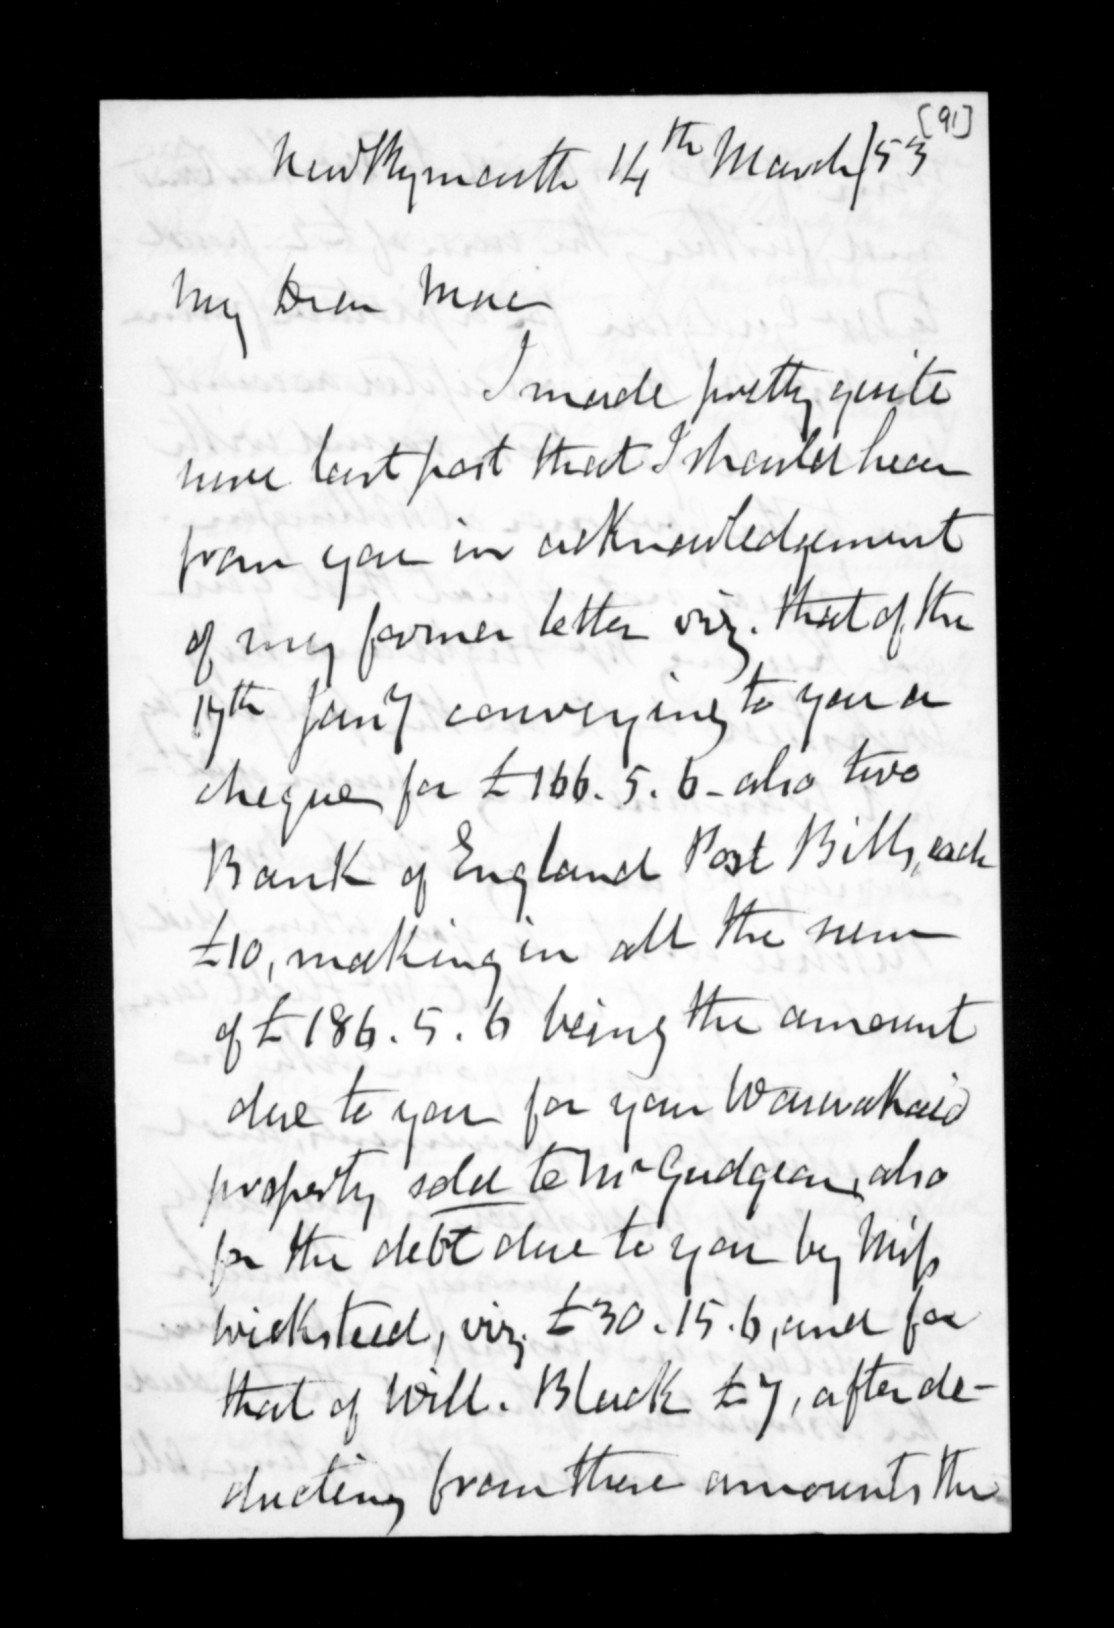 [91]
New Plymouth 14th March/53
My Dear Mac
I made pretty quite
sure last post that I should hear
from you in acknowledgement
of my former letter viz. that of the
17th Jany conveying to you a
cheque for £166.5.6 - also two
Bank of England Post Bills, each
£10, making in all the sum
of £186.5.6 being the amount
due to you for your Waiwakaio
property sold to Mr Gudgeon, also
for the debt due to you by Miss
Wicksteed, viz. £30.15.6, and for
that of Will. Black £7, after de-
ducting from these amounts the